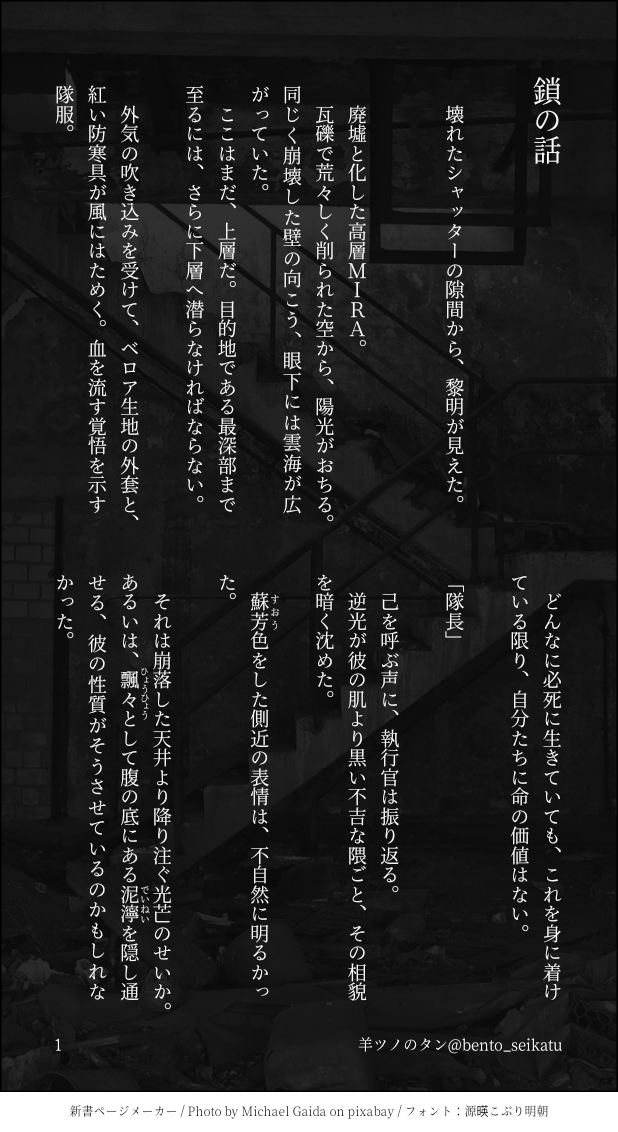 鎖の話
壊れたシャッターの隙間から、黎明が見えた。
廃墟と化した高層ＭＩＲＡ。
瓦礫で荒々しく削られた空から、陽光がおちる。
同じく崩壊した壁の向こう、眼下には雲海が広
がっていた。
ここはまだ、上層だ。目的地である最深部まで
至るには、さらに下層へ潜らなければならない。
外気の吹き込みを受けて、ベロア生地の外套と、
紅い防寒具が風にはためく。血を流す覚悟を示す
隊服。
どんなに必死に生きていても、これを身に着け
ている限り、自分たちに命の価値はない。
「隊長」
己を呼ぶ声に、執行官は振り返る。
逆光が彼の肌より黒い不吉な隈ごと、その相貌
を暗く沈めた。
蘇芳色をした側近の表情は、不自然に明るかっ
すおう
た。
それは崩落した天井より降り注ぐ光芒のせいか。
あるいは、飄々として腹の底にある泥濘を隠し通
ひょうひょう
でいねい
せる、彼の性質がそうさせているのかもしれな
かった。
1
羊ツノのタン@bento_seikatu
新書ページメーカー / Photo by Michael Gaida on pixabay / フォント：源暎こぶり明朝